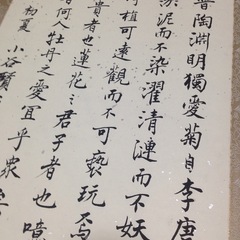 晋陶淵明獨愛菊自李唐
泥而不染濯清漣而不妖
植可遠觀而不可褻玩焉
貴者也蓮花之君子者也噫
何人牡丹之愛宜乎衆
初夏 小谷